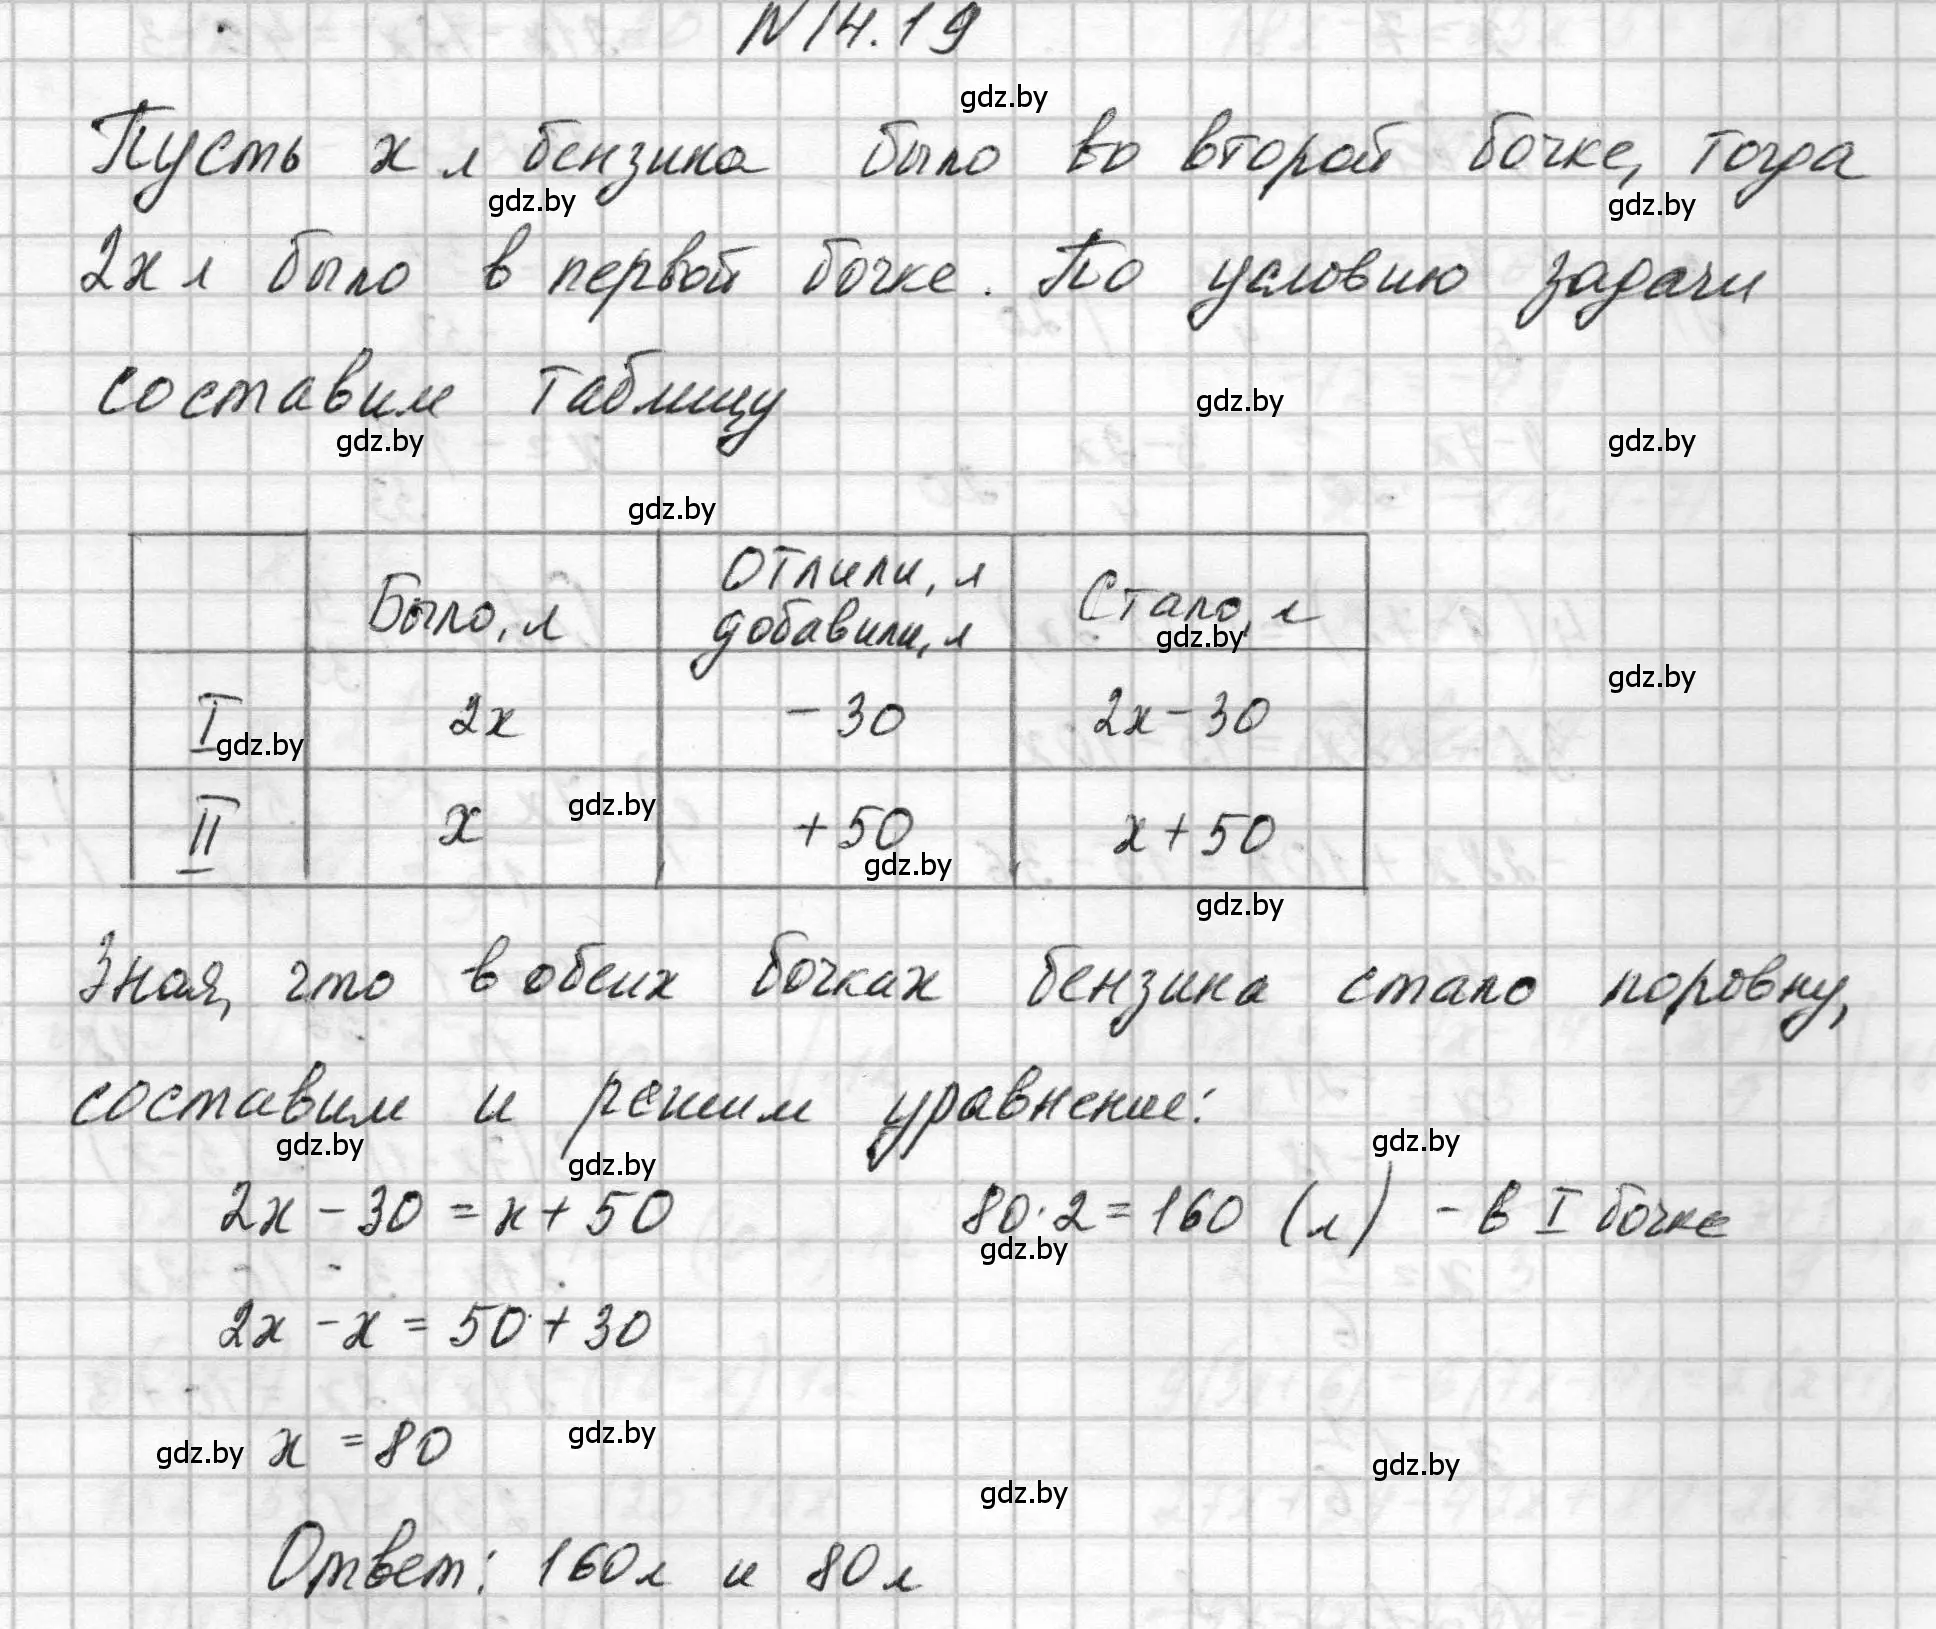 N14.19
gdz.by
Пусть x л бензина было во второй бочке, тогда
gdz.by gdz.by
2x л было в первой бочке. По условию задачи
составим таблицу gdz.by
gdz.by gdz.by
gdz.by
Было, л Отлили, л добавили, л Стало, л
gdz.by
gdz.by
I 2x - 30 2x - 30
gdz.by
gdz.by
II x + 50 x + 50
gdz.by
gdz.by
Зная, что в обеих бочках бензина стало поровну,
составим и решим уравнение:
gdz.by gdz.by gdz.by
2x - 30 = x + 50 80 · 2 = 160 (л) - в I бочке
gdz.by
2x - x = 50 + 30
gdz.by x = 80 gdz.by gdz.by
gdz.by
Ответ: 160 л и 80 л